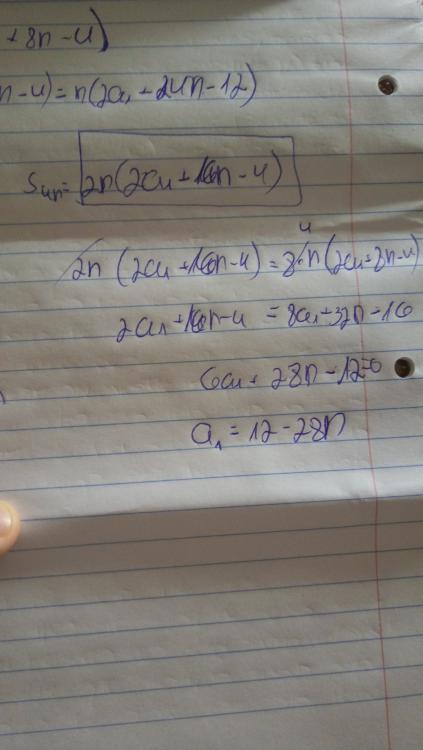 + 8n - 4)
n - 4) = n(2a₁ + 24n - 12)
S₄ₙ = 2n(2a₁ + 16n - 4)
4
2n (2a₁ + 16n - 4) = 8 · n (2a₁ + 8n - 4)
2a₁ + 16n - 4 = 8a₁ + 32n - 16
6a₁ + 28n - 12 = 0
a₁ = 12 - 28n